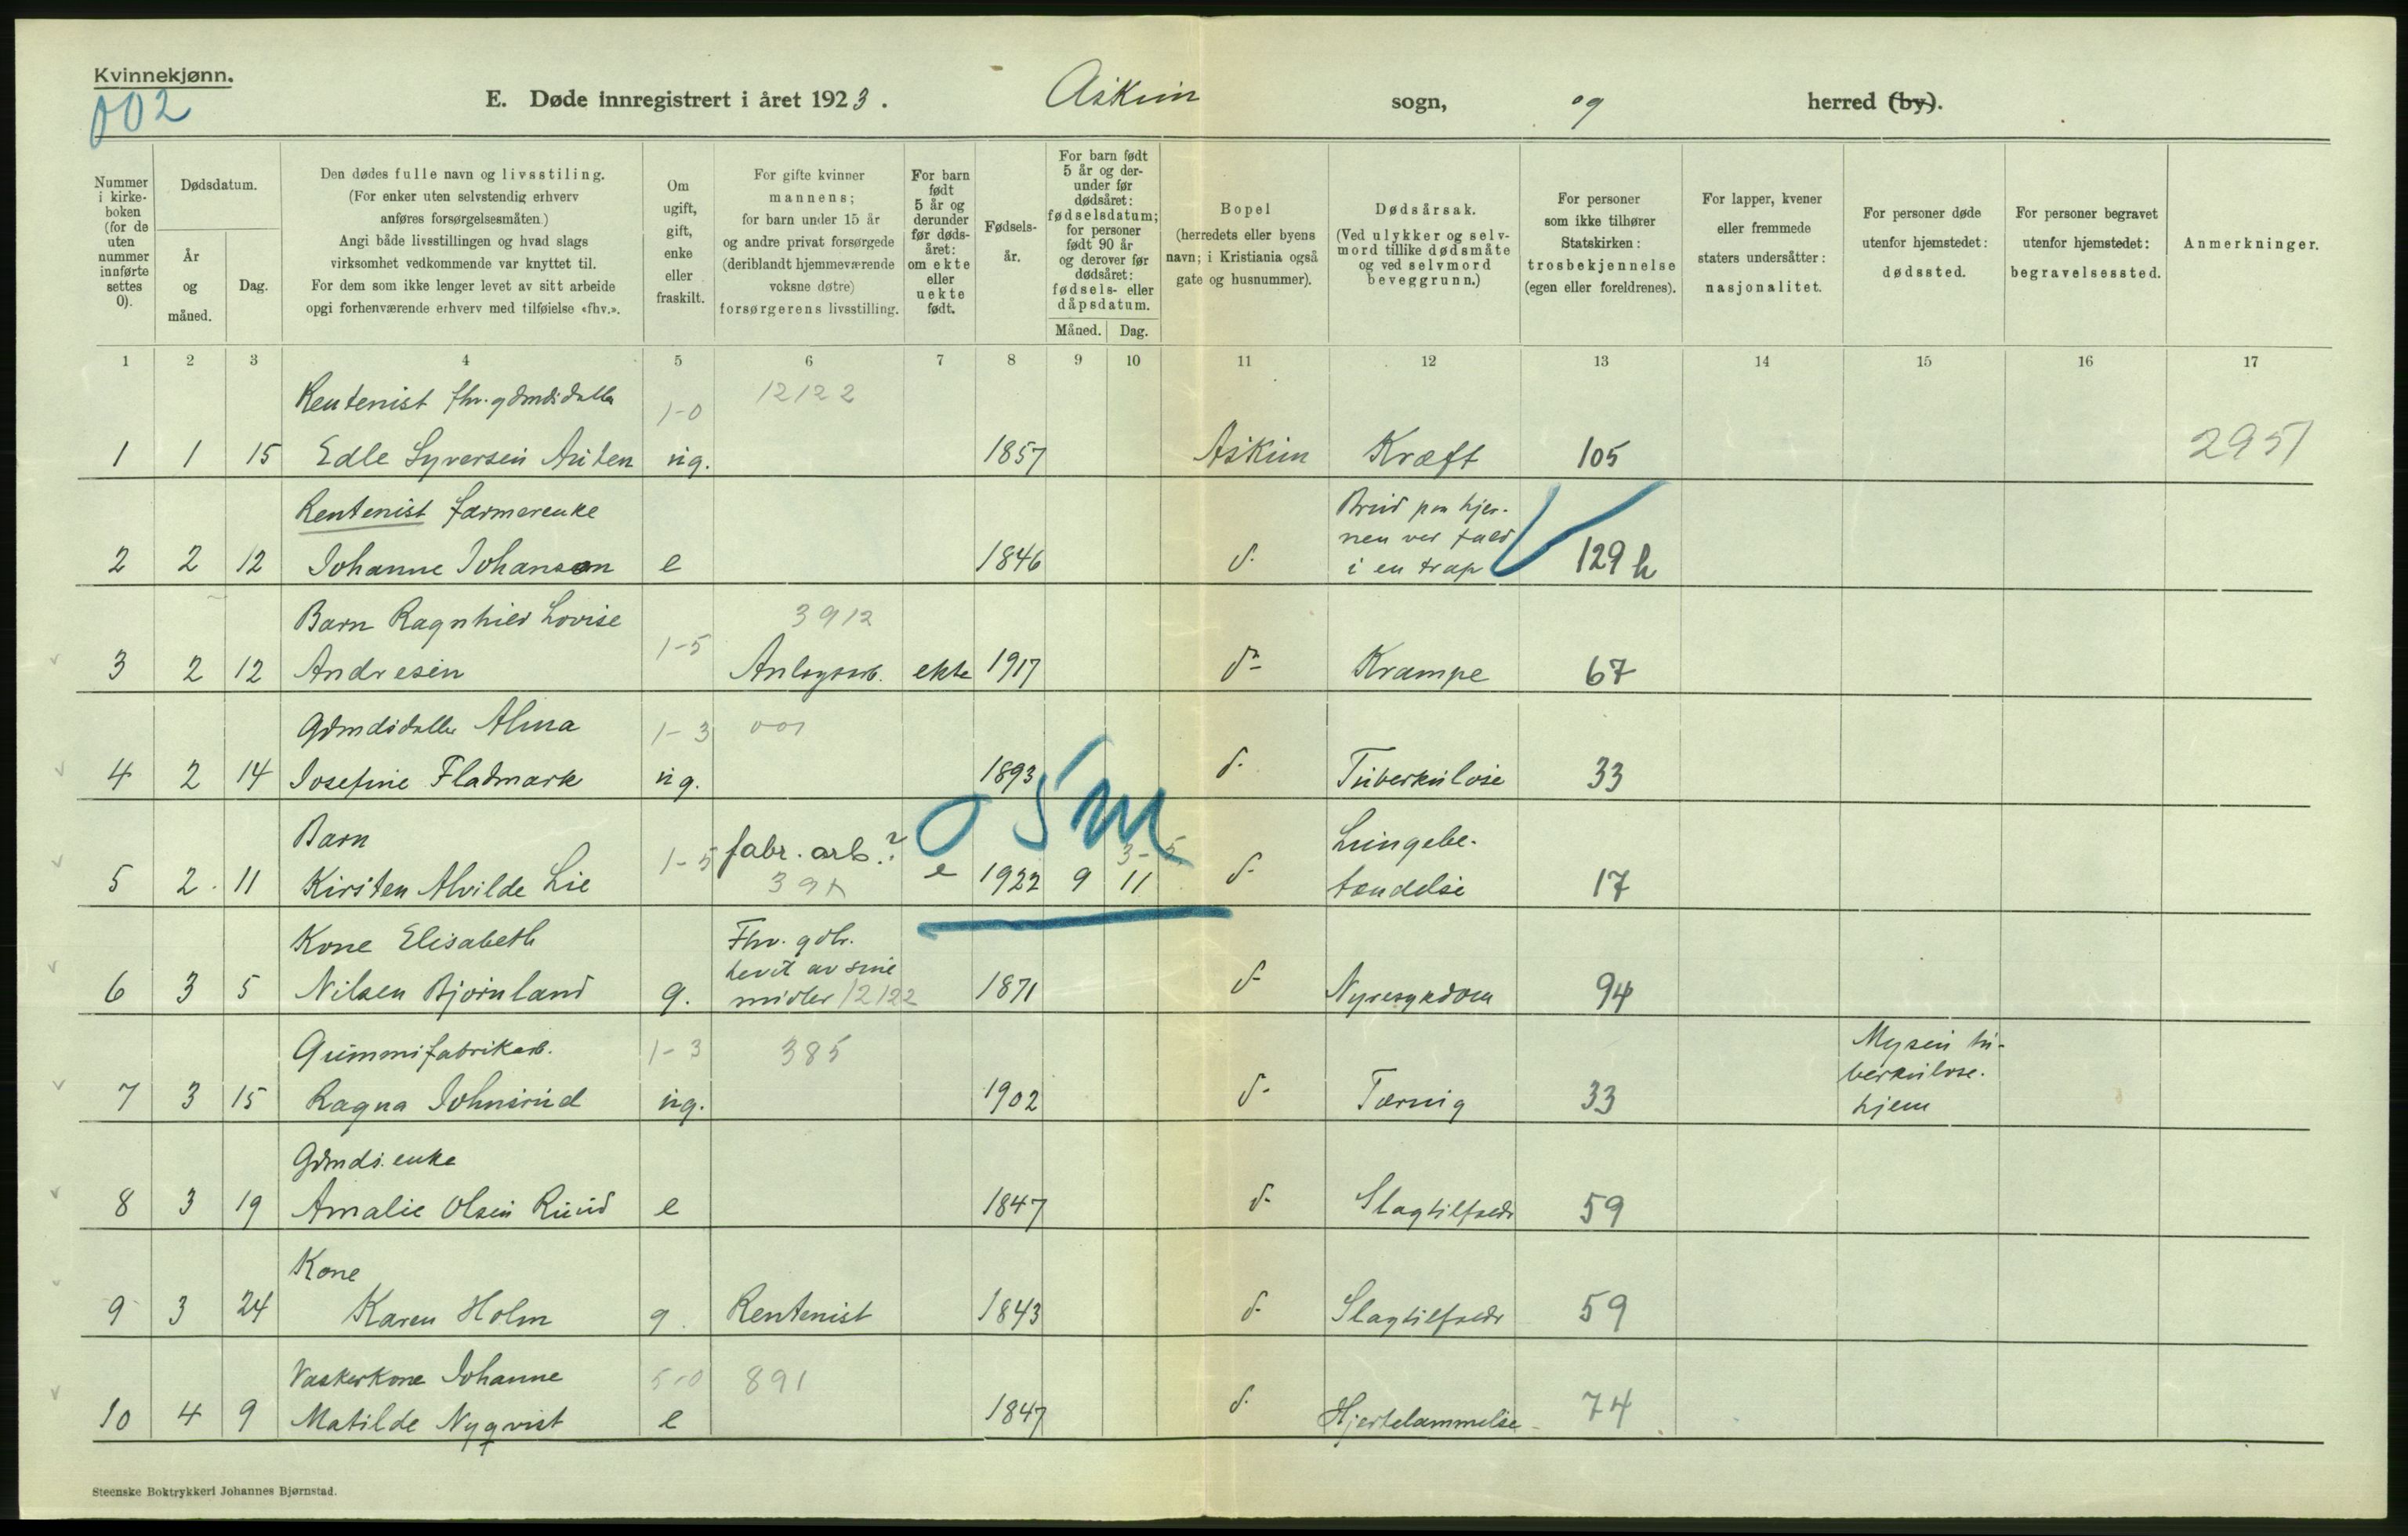 Kvinnekjønn.
002
E. Døde innregistrert i året 1923. Askim sogn, og herred (by).
Nummer i kirkeboken (for de uten nummer innførte settes 0).
Dødsdatum.
År og måned.
Dag.
Den dødes fulle navn og livsstiling.
(For enker uten selvstendig erhverv
anføres forsørgelsesmåten.)
Angi både livsstillingen og hvad slags
virksomhet vedkommende var knyttet til.
For dem som ikke lenger levet av sitt arbeide
opgi forhenværende erhverv med tilføielse «fhv.».
Om ugift, gift, enke eller fraskilt.
For gifte kvinner
mannens;
for barn under 15 år
og andre privat forsørgede
(deriblandt hjemmeværende
voksne døtre)
forsørgerens livsstilling.
For barn født 5 år og derunder før dødsåret: om ekte eller uekte født.
Fødselsår.
For barn født 5 år og derunder før dødsåret: fødselsdatum; for personer født 90 år og derover før dødsåret: fødsels- eller dåpsdatum.
Måned. Dag.
Bopel
(herredets eller byens
navn; i Kristiania også
gate og husnummer).
Dødsårsak.
(Ved ulykker og selvmord tillike dødsmåte
og ved selvmord
beveggrunn.)
For personer
som ikke tilhører
Statskirken:
trosbekjennelse
(egen eller foreldrenes).
For lapper, kvener
eller fremmede
staters undersåtter:
nasjonalitet.
For personer døde
utenfor hjemstedet:
dødssted.
For personer begravet
utenfor hjemstedet:
begravelsessted.
Anmerkninger.
1 2 3 4 5 6 7 8 9 10 11 12 13 14 15 16 17
Rentenist fhv. gdmdsdatter 1-0 12122
1 1 15 Edle Syversen Auten ug. 1857 Askim Kræft 105 2951
Rentenist farmerenke Brud paa hjer-
nen ved fald
2 2 12 Johanne Johanson e 1846 d. i en trap 129 h
Barn Ragnhild Lovise 3912
1-5
3 2 12 Andresen Anlegsarb. ekte 1917 do Krampe 67
Gdmdsdatter Alma 1-3 001
4 2 14 Josefine Fladmark ug. 1893 d. Tuberkulose 33
Barn fabr. arb.? 0 5 m Lungebe-
1-5 3-5
5 2 11 Kirsten Alvilde Lie e 1922 9 11 d. tændelse 17
Kone Elisabeth Fhv. gdbr.
levet av sine
6 3 5 Nilsen Bjørnland g. midler 12122 1871 d. Nyresykdom 94
Gummifabrikarb. 1-3 385 Mysen tu-
berkulose.
7 3 15 Ragna Johnsrud ug. 1902 d. Tæring 33 hjem
Gdmds. enke
8 3 19 Amalie Olsen Ruud e 1847 d. Slagtilfælde 59
Kone
9 3 24 Karen Holm g. Rentenist 1843 d. Slagtilfælde 59
Vaskerkone Johanne 5-0 891
10 4 9 Matilde Nyqvist e 1847 d. Hjertelammelse 74
Steenske Boktrykkeri Johannes Bjørnstad.